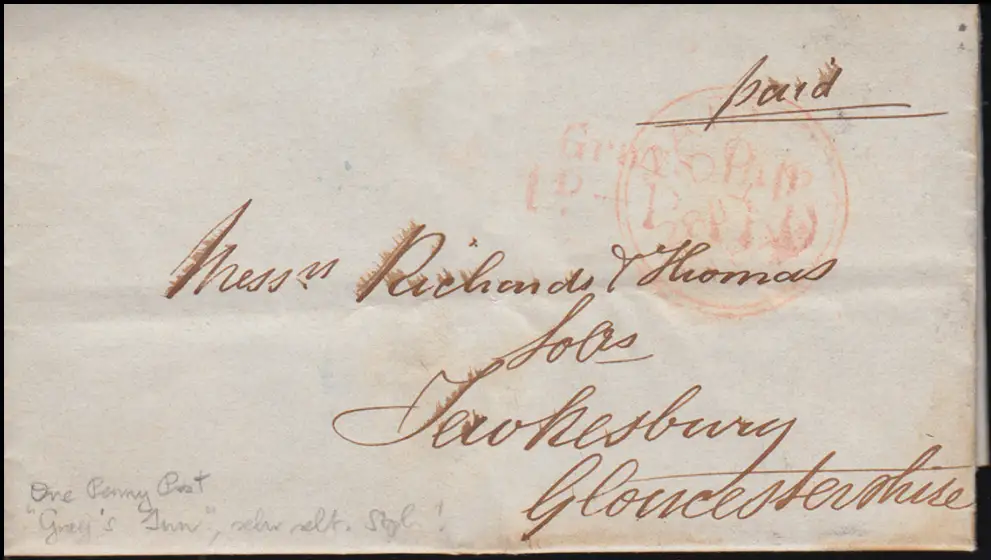 paid
Gray's Inn
1 Py P
Messrs Richards & Thomas
Solrs
Tewkesbury
Gloucestershire
One Penny Post
"Gray's Inn", sehr selt. Stpl!